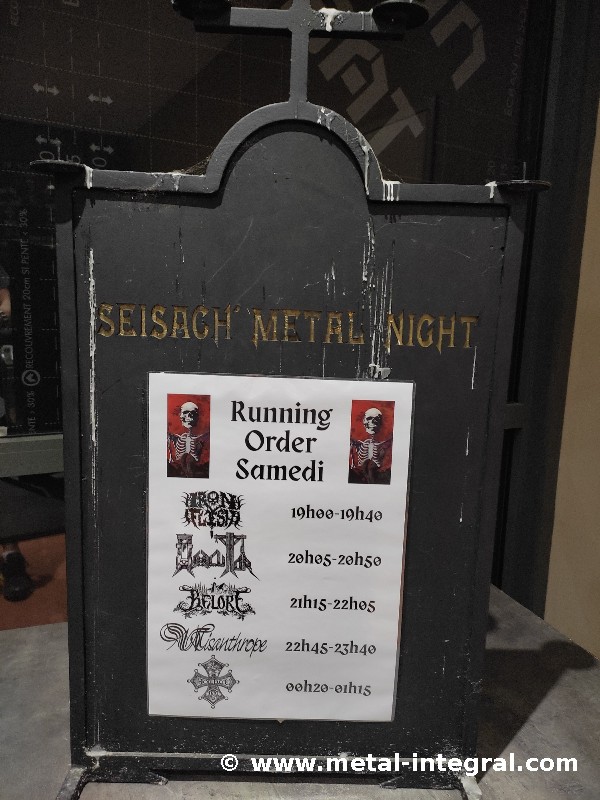 SEISACH' METAL NIGHT
Running
Order
Samedi
IRON
FLESH
19h00-19h40
20h05-20h50
BELORE
21h15-22h05
Misanthrope
22h45-23h40
00h20-01h15
RECOUVREMENT 20cm SI PENTE > 30%
© www.metal-integral.com